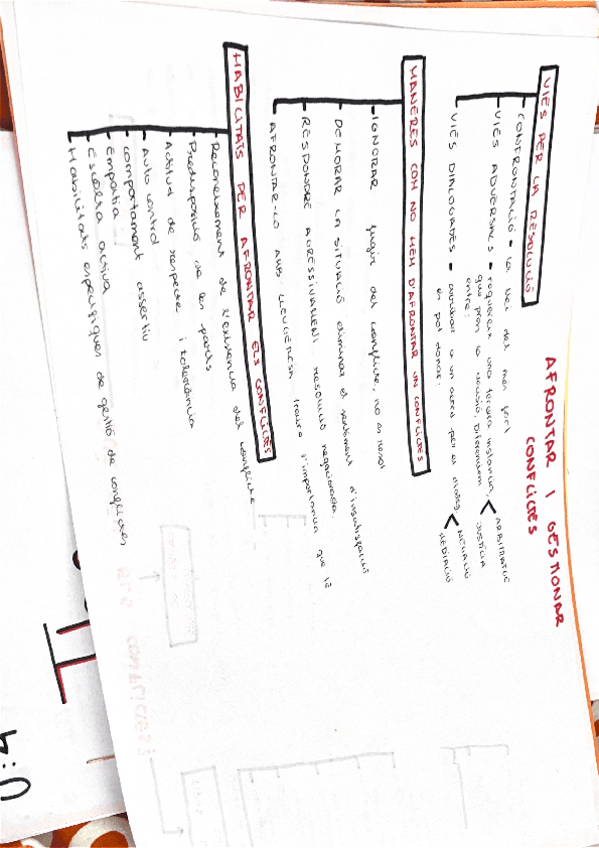 AFRONTAR I GESTIONAR
CONFLICTES
VIES PER LA RESOLUCIÓ
CONFRONTACIÓ = la llei del més fort
VIES ADVERSALS = requereix una tercera instància,
que pren la decisió. Diferenciem
entre:
ARBITRATGE
JUSTÍCIA
VIES DIALOGADES = arribar a un acord per el diàleg,
es pot donar:
MEDIACIÓ
MANERES COM NO HEM D'AFRONTAR UN CONFLICTES
IGNORAR fugir del conflicte, no es resol
DEMORAR LA SITUACIÓ eliminar el sentiment d'insatisfacció
RESPONDRE AGRESSIVAMENT resolució negociada.
AFRONTAR-LO AMB LLEUGERESA treure l'importància que té
HABILITATS PER AFRONTAR ELS CONFLICTES
Reconeixement de l'existència del conflicte
Predisposició de les parts
Actitud de respecte i tolerància
Auto control
Comportament assertiu
Empatia
Escolta activa
Habilitats específiques de gestió de conflictes